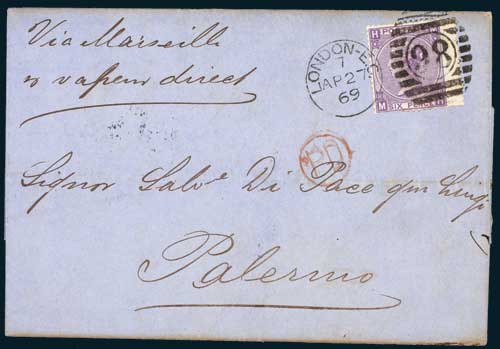 Via Marseille
o vapeur direct
LONDON-E
7
AP 27
69
98
H P
M SIX PENCE H
PD
Signor Salv.e Di Pace qm Luigi
Palermo